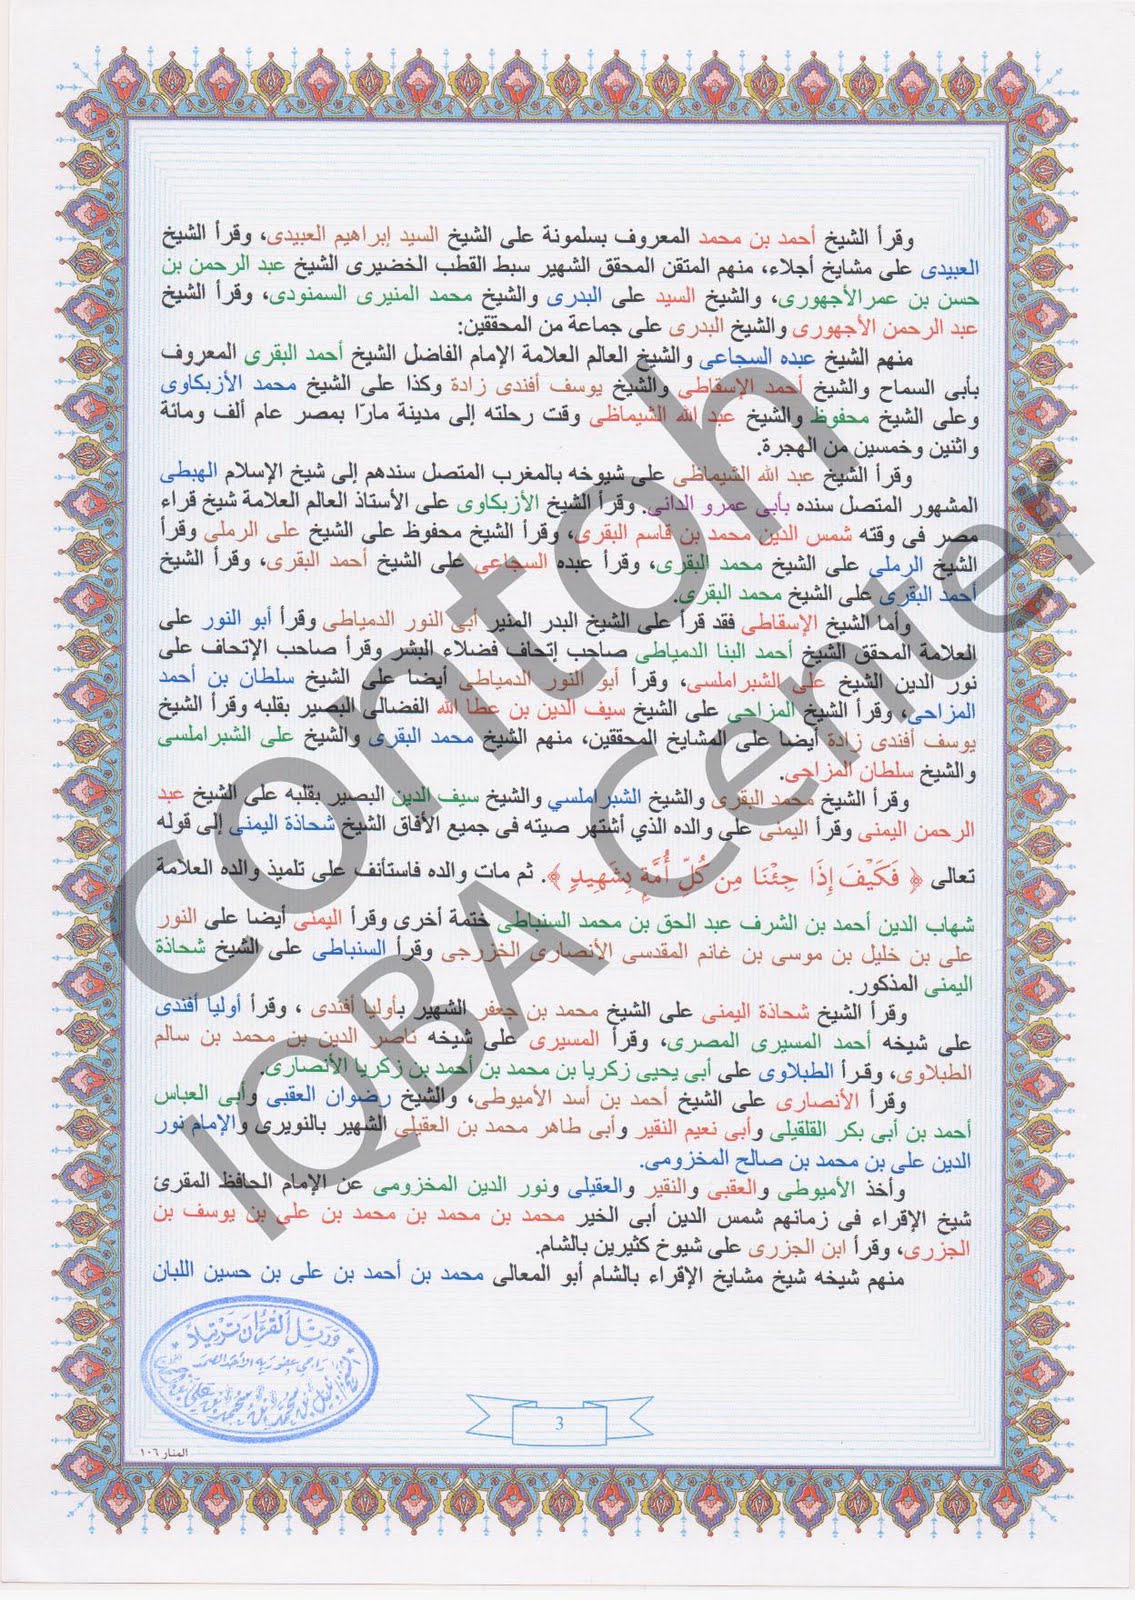 وقرأ الشيخ أحمد بن محمد المعروف بسلمونة على الشيخ السيد إبراهيم العبيدى، وقرأ الشيخ
العبيدى على مشايخ أجلاء، منهم المتقن المحقق الشهير سبط القطب الخضيرى الشيخ عبد الرحمن بن
حسن بن عمر الأجهورى، والشيخ السيد على البدرى والشيخ محمد المنيرى السمنودى، وقرأ الشيخ
عبد الرحمن الأجهورى والشيخ البدرى على جماعة من المحققين:
منهم الشيخ عبده السجاعى والشيخ العالم العلامة الإمام الفاضل الشيخ أحمد البقرى المعروف
بأبى السماح والشيخ أحمد الإسقاطى والشيخ يوسف أفندى زادة وكذا على الشيخ محمد الأزبكاوى
وعلى الشيخ محفوظ والشيخ عبد الله الشيماظى وقت رحلته إلى مدينة مارًا بمصر عام ألف ومائة
واثنين وخمسين من الهجرة.
وقرأ الشيخ عبد الله الشيماظى على شيوخه بالمغرب المتصل سندهم إلى شيخ الإسلام الهبطى
المشهور المتصل سنده بأبى عمرو الدانى. وقرأ الشيخ الأزبكاوى على الأستاذ العالم العلامة شيخ قراء
مصر فى وقته شمس الدين محمد بن قاسم البقرى، وقرأ الشيخ محفوظ على الشيخ على الرملى وقرأ
الشيخ الرملى على الشيخ محمد البقرى، وقرأ عبده السجاعى على الشيخ أحمد البقرى، وقرأ الشيخ
أحمد البقرى على الشيخ محمد البقرى.
وأما الشيخ الإسقاطى فقد قرأ على الشيخ البدر المنير أبى النور الدمياطى وقرأ أبو النور على
العلامة المحقق الشيخ أحمد البنا الدمياطى صاحب إتحاف فضلاء البشر وقرأ صاحب الإتحاف على
نور الدين الشيخ على الشبراملسى، وقرأ أبو النور الدمياطى أيضا على الشيخ سلطان بن أحمد
المزاحى، وقرأ الشيخ المزاحى على الشيخ سيف الدين بن عطا الله الفضالى البصير بقلبه وقرأ الشيخ
يوسف أفندى زادة أيضا على المشايخ المحققين، منهم الشيخ محمد البقرى والشيخ على الشبراملسى
والشيخ سلطان المزاحى.
وقرأ الشيخ محمد البقرى والشيخ الشبراملسي والشيخ سيف الدين البصير بقلبه على الشيخ عبد
الرحمن اليمنى وقرأ اليمنى على والده الذي أشتهر صيته فى جميع الأفاق الشيخ شحاذة اليمنى إلى قوله
تعالى ﴿ فَكَيْفَ إِذَا جِئْنَا مِن كُلِّ أُمَّةٍ بِشَهِيدٍ ﴾. ثم مات والده فاستأنف على تلميذ والده العلامة
شهاب الدين أحمد بن الشرف عبد الحق بن محمد السنباطى ختمة أخرى وقرأ اليمنى أيضا على النور
على بن خليل بن موسى بن غانم المقدسى الأنصارى الخزرجى وقرأ السنباطى على الشيخ شحاذة
اليمنى المذكور.
وقرأ الشيخ شحاذة اليمنى على الشيخ محمد بن جعفر الشهير بأوليا أفندى ، وقرأ أوليا أفندى
على شيخه أحمد المسيرى المصرى، وقرأ المسيرى على شيخه ناصر الدين بن محمد بن سالم
الطبلاوى، وقرأ الطبلاوى على أبى يحيى زكريا بن محمد بن أحمد بن زكريا الأنصارى.
وقرأ الأنصارى على الشيخ أحمد بن أسد الأميوطى، والشيخ رضوان العقبى وأبى العباس
أحمد بن أبى بكر القلقيلى وأبى نعيم النقير وأبى طاهر محمد بن العقيلى الشهير بالنويرى والإمام نور
الدين على بن محمد بن صالح المخزومى.
وأخذ الأميوطى والعقبى والنقير والعقيلى ونور الدين المخزومى عن الإمام الحافظ المقرئ
شيخ الإقراء فى زمانهم شمس الدين أبى الخير محمد بن محمد بن محمد بن على بن يوسف بن
الجزرى، وقرأ ابن الجزرى على شيوخ كثيرين بالشام.
منهم شيخه شيخ مشايخ الإقراء بالشام أبو المعالى محمد بن أحمد بن على بن حسين اللبان
ورتل القرآن ترتيلا
راجي عفو ربه الأحد الصمد
3
المنار ١٠٦
contoh
IQBA Center